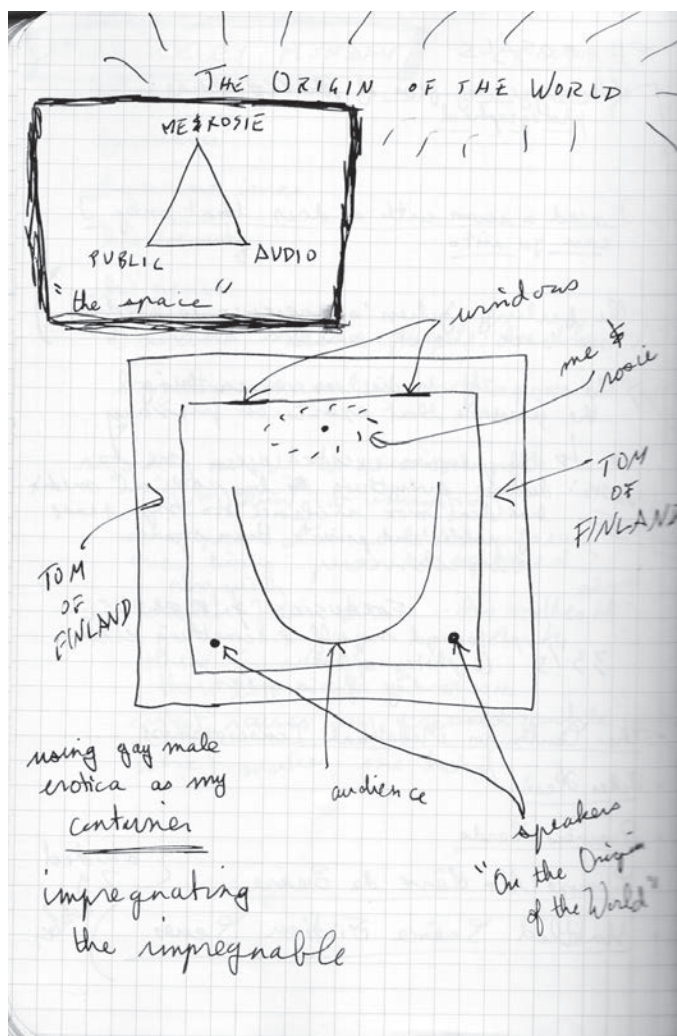 THE ORIGIN OF THE WORLD
ME & ROSIE
PUBLIC
AUDIO
"the space"
windows
me &
rosie
TOM
OF
FINLAND
TOM
OF
FINLAND
using gay male
erotica as my
audience
speakers
"On the Origin
of the World"
impregnating
the impregnable